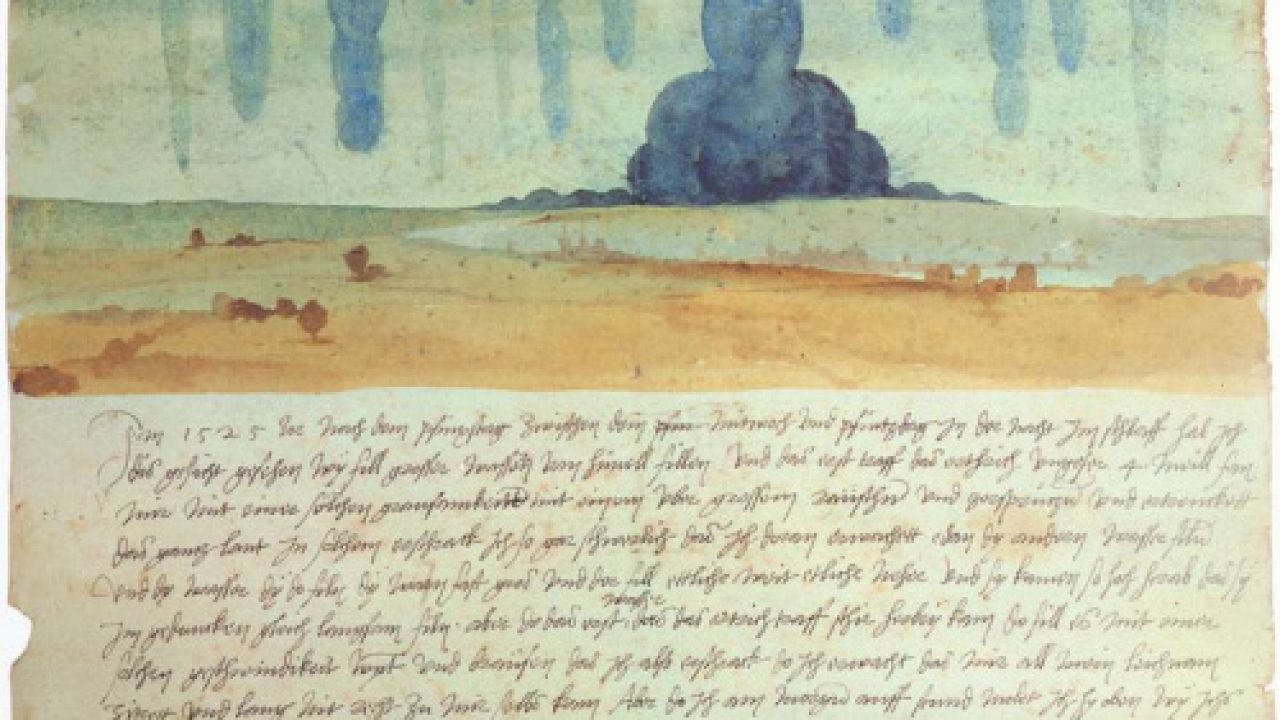 Im 1525 Jor nach dem pfinxstag zwischen dem Mitwoch und pfintzdag in der nacht im schlaff hab ich
dis gesicht gesehen wy fill grosser wassern vom himell fillen Und das erst traff das erthrich ungefer 4 meill fan
mir mit einer solchen grausamkeitt mit einem uber grossem raüschn und zersprützn und ertrenckett
das gantz lant In solchem erschrack ich so gar schwerlich das ich doran erwachett edan dy andern wasser filn
Und dy wasser dy do filn dy warn fast gros und der fill ettliche weit etliche neher und sy kamen so hoch herab das sy
im gedancken gleich langsam filn. aber do das erst wasser das das ertrich traff schir herbey kam do fill es mit einer
solchen geschwindikeit wynt und braüsen das ich also erschrack do ich erwacht das mir all mein leichnam
zitrett und lang nit recht zu mir selbs kam Aber do ich am morgn auff stund molet ich hy oben wy ichs